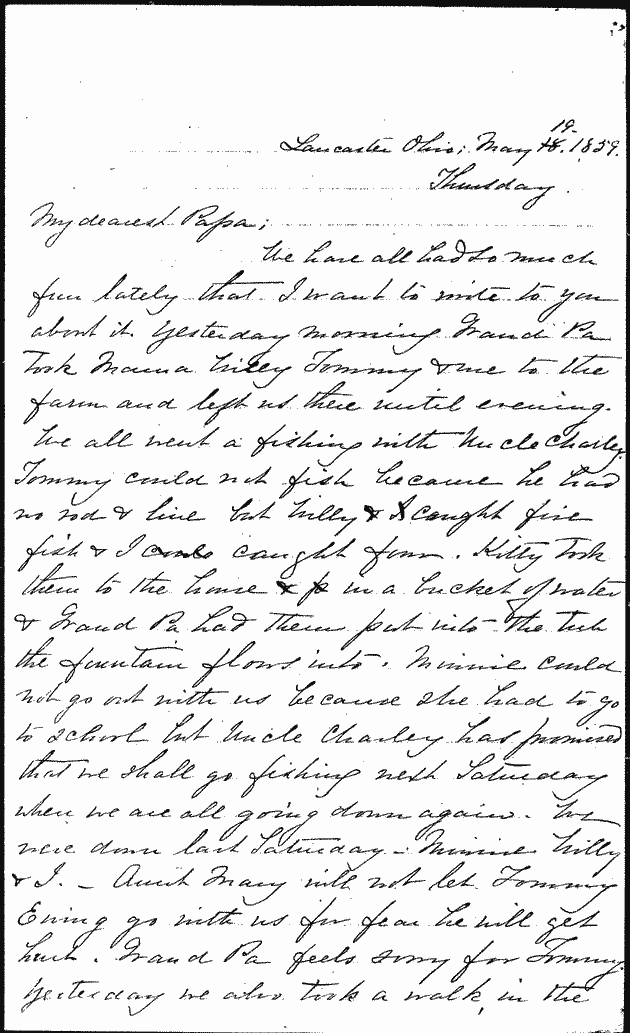 19.
Lancaster Ohio; May 18. 1859.
Thursday.
My dearest Papa;
We have all had so much
fun lately that I want to write to you
about it. Yesterday morning Grand Pa
took Mama Willy Tommy & me to the
farm and left us there until evening.
We all went a fishing with Uncle Charley.
Tommy could not fish because he had
no rod & line but Willy & I caught five
fish & I caught four. Kitty took
them to the house & p in a bucket of water
& Grand Pa had them put into the tub
the fountain flows into. Minnie could
not go out with us because she had to go
to school but Uncle Charley has promised
that we shall go fishing next Saturday
when we are all going down again. We
were down last Saturday - Minnie Willy
& I. - Aunt Mary will not let Tommy
Ewing go with us for fear he will get
hurt. Grand Pa feels sorry for Tommy.
Yesterday we also took a walk in the